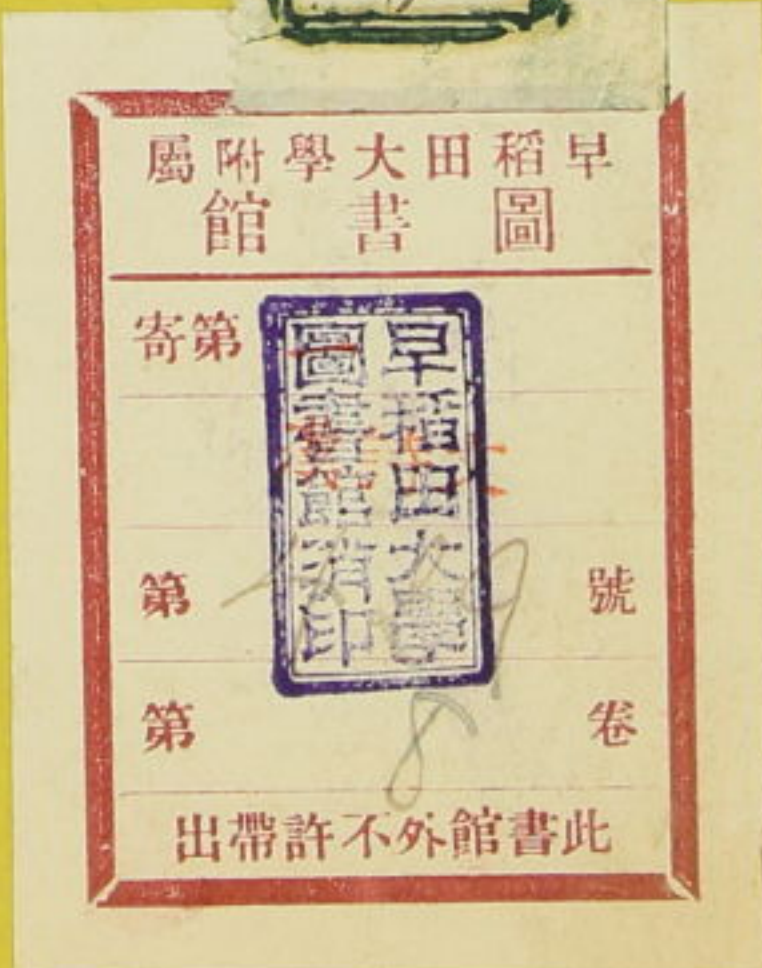 早稻田大學附屬
圖書館
寄第
早稻田大學
圖書館消印
第 號
第 8 卷
此書館外不許帶出